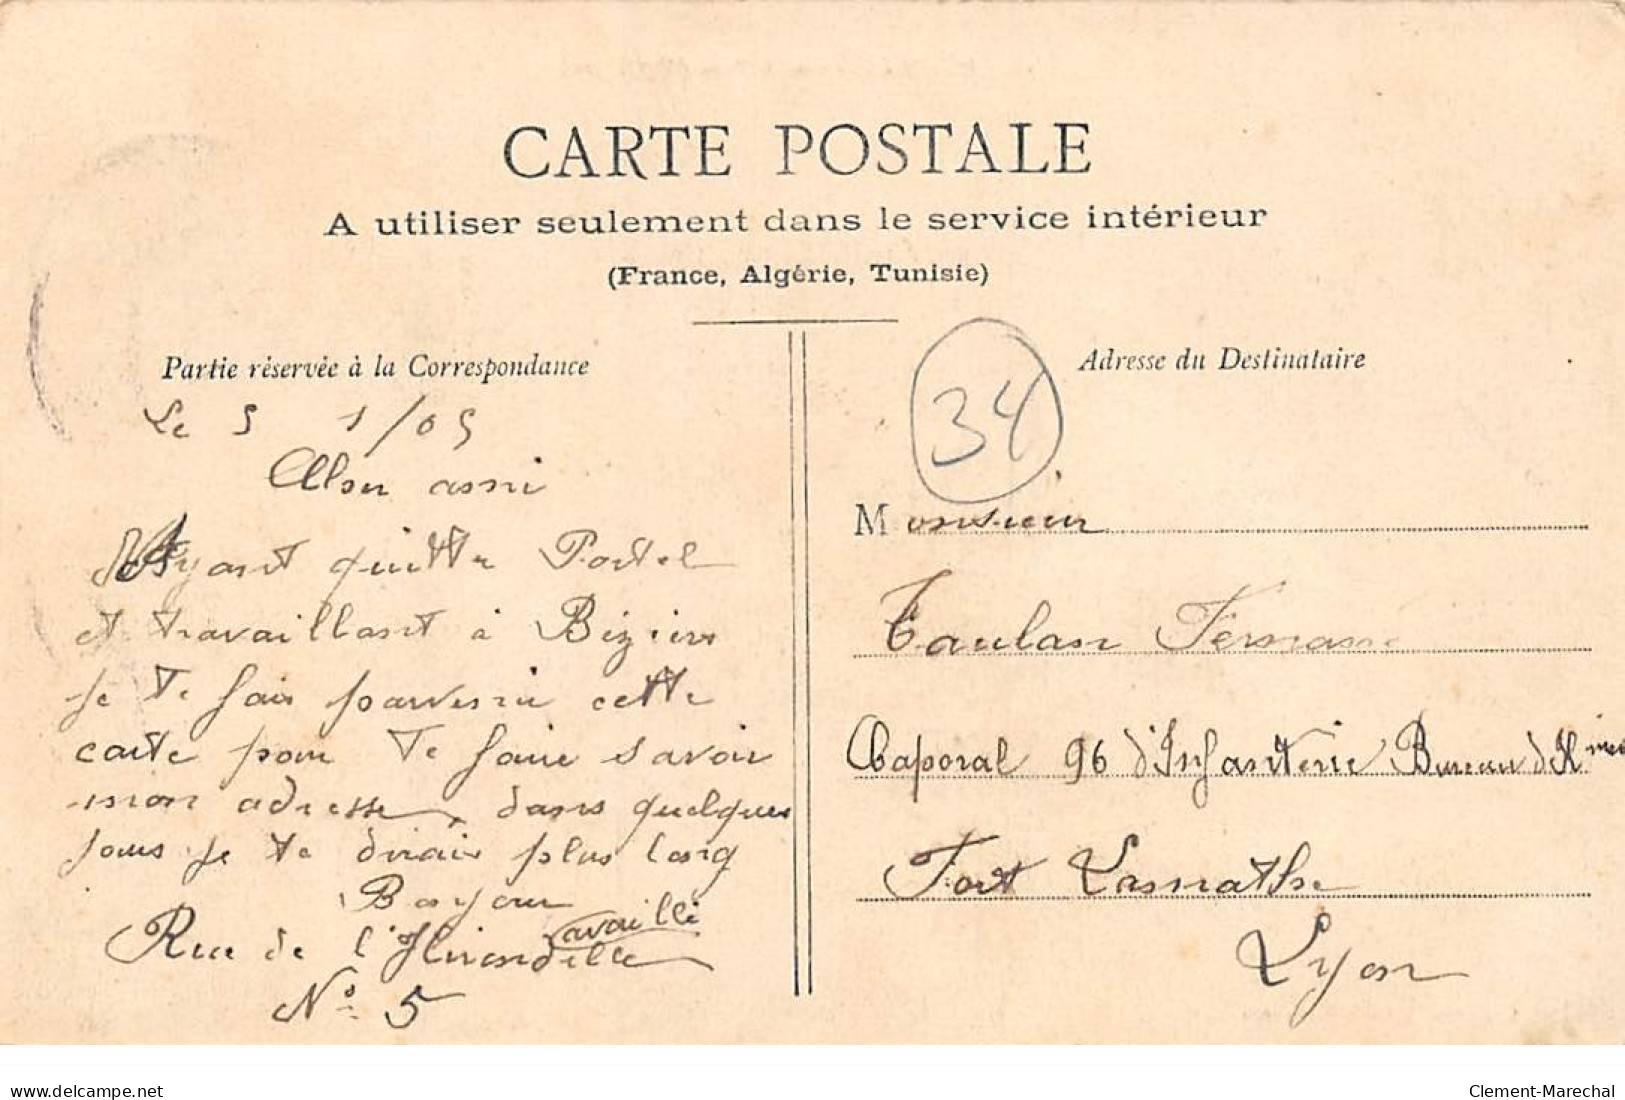 CARTE POSTALE
A utiliser seulement dans le service intérieur
(France, Algérie, Tunisie)
Partie réservée à la Correspondance
Le 5 1/05
Ayant quitte Portel
et travaillant à Béziers
je te fais parvenir cette
carte pour te faire savoir
mon adresse, dans quelques
jours je te dirais plus long
Rue de l'Hirondelle
N° 5
Adresse du Destinataire
34
Monsieur
Taulan Fernand
Caporal 96 d'Infanterie Bureau
Fort Lamothe
Lyon
delcampe.net
Clement-Marechal